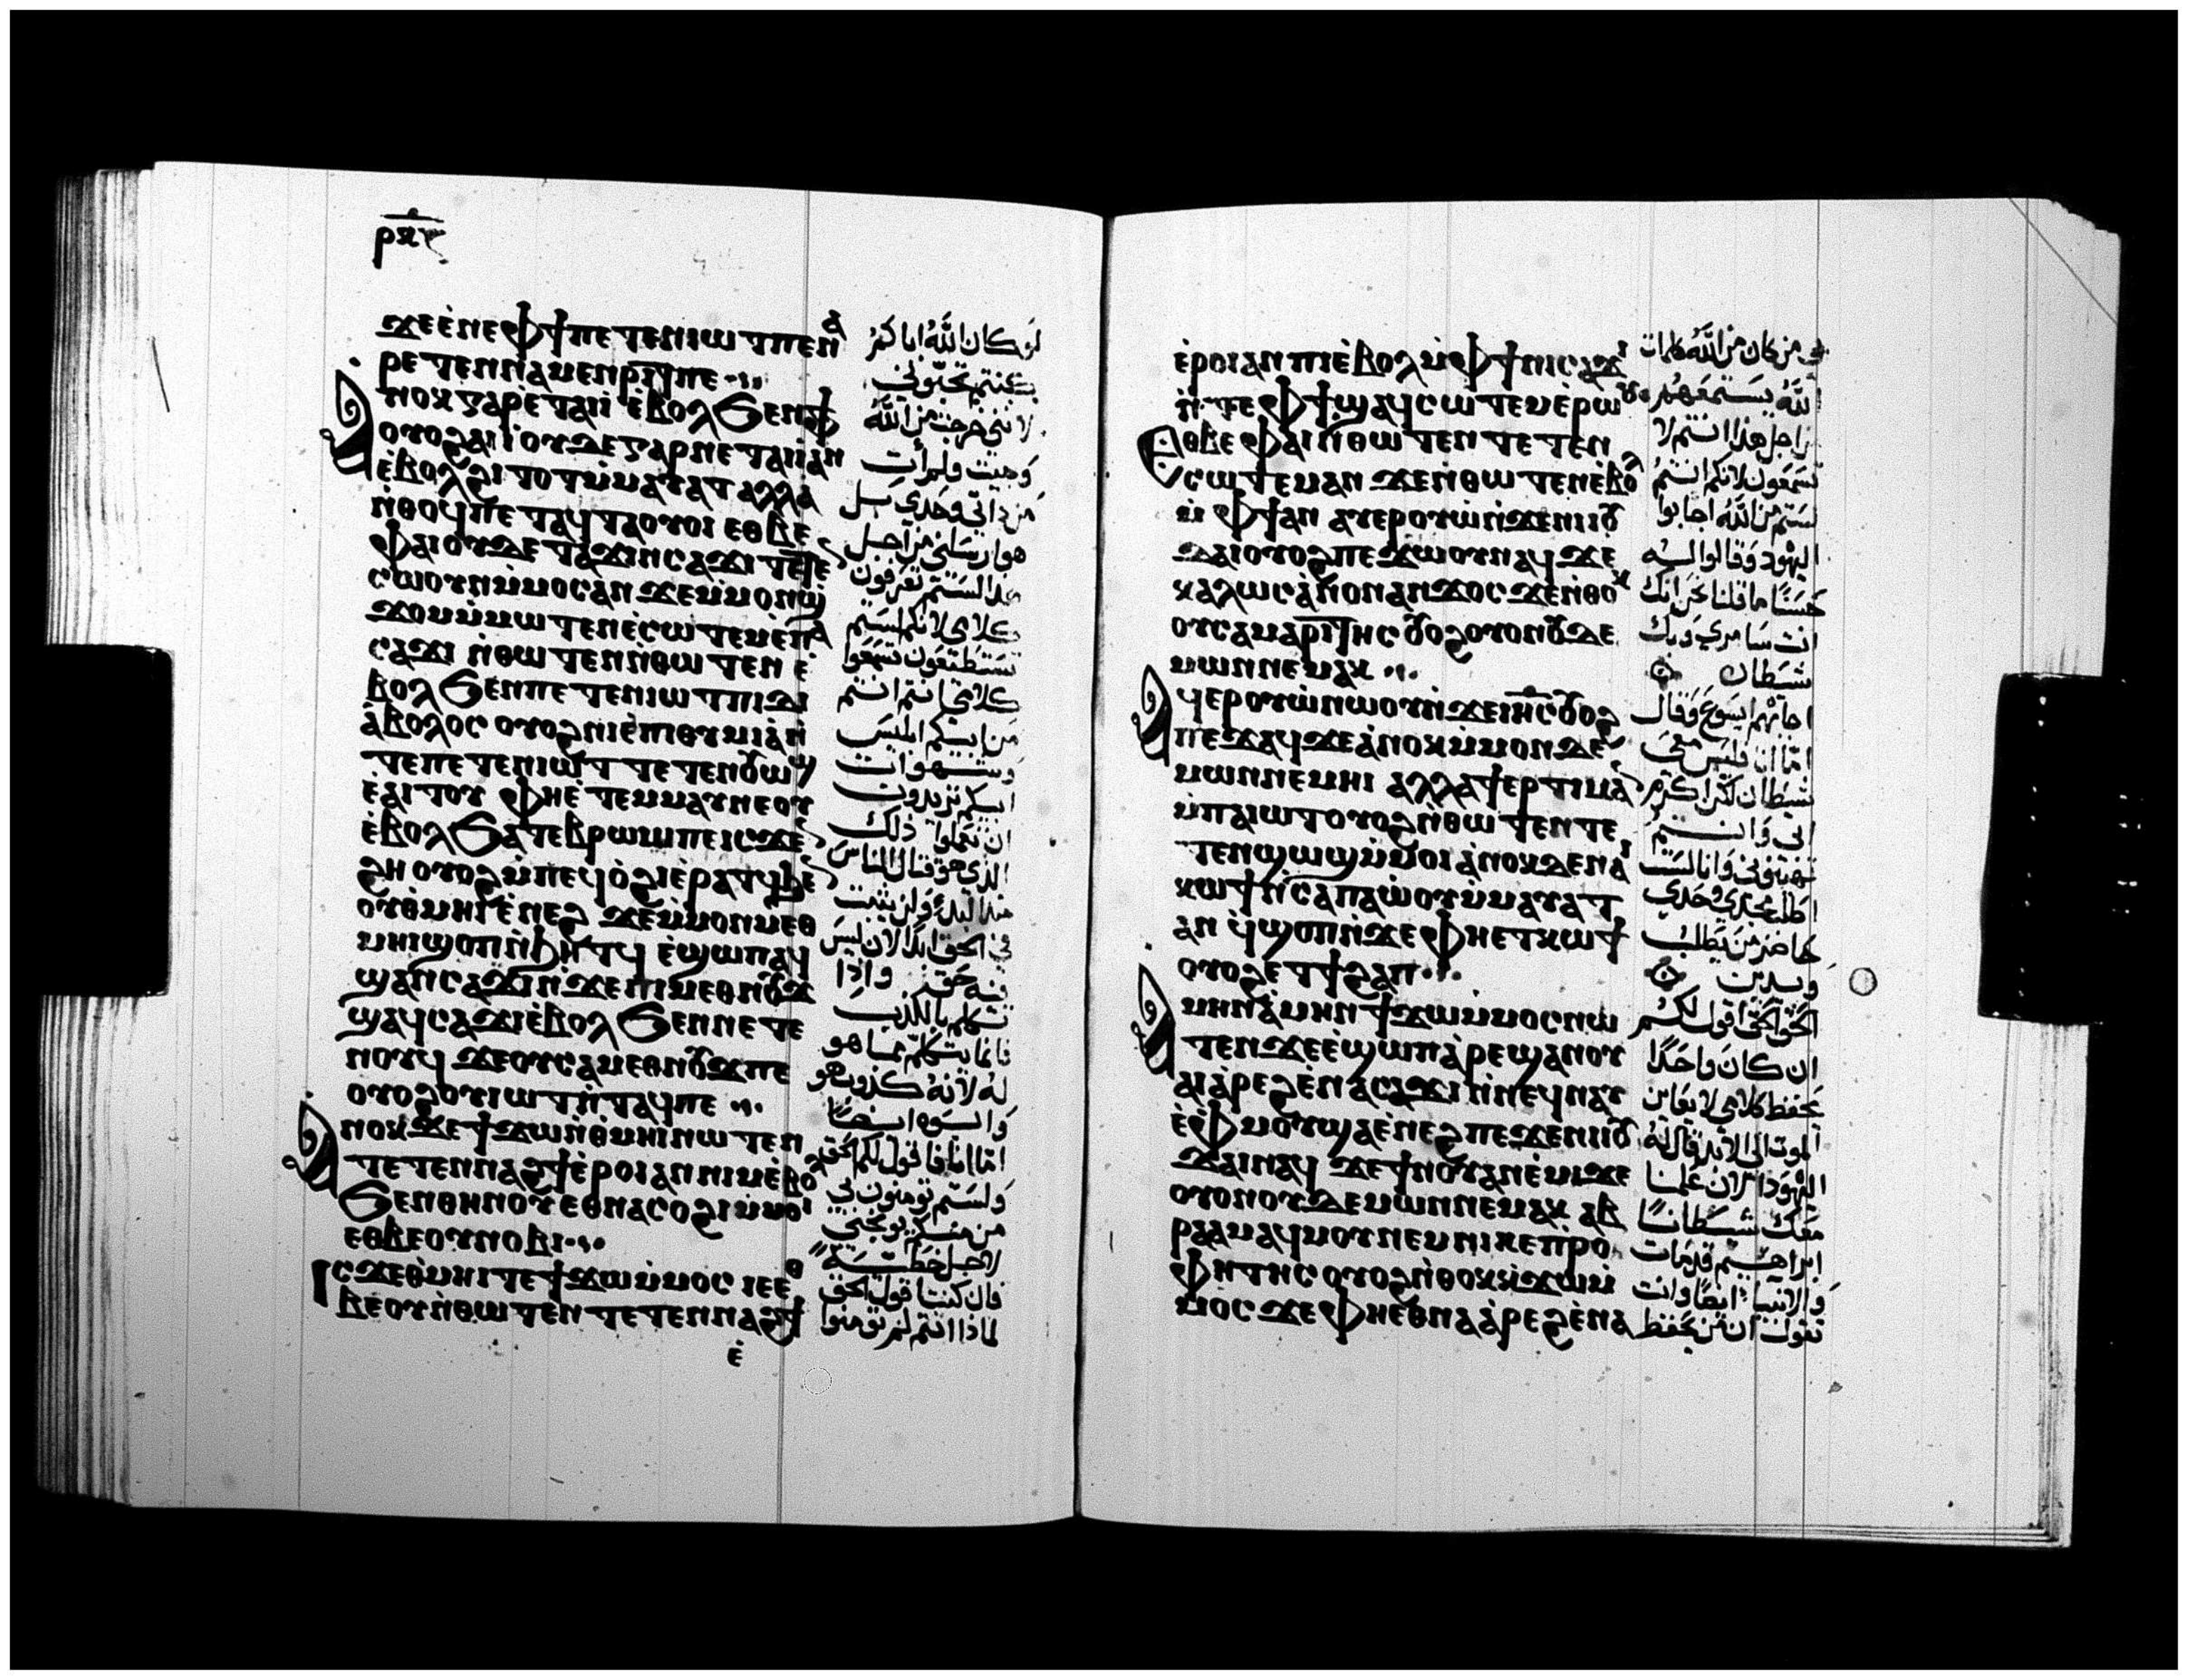 ⲣⲝⲋ
ϫⲉⲉ̀ⲛⲉⲫϯⲡⲉⲧⲉⲛⲓⲱⲧⲡⲉⲛⲁ
ⲣⲉⲧⲉⲛⲛⲁⲙⲉⲛⲣⲓⲧⲡⲉ
ⲁⲛⲟⲕⲅⲁⲣⲉ̀ⲧⲁⲓⲓ̀ ⲉ̀ⲃⲟⲗϧⲉⲛⲫϯ
ⲟⲩⲟϩⲁⲓⲓ̀ⲟⲩⲇⲉⲅⲁⲣⲛⲉⲧⲁⲓⲓ̀ⲁⲛ
ⲉ̀ⲃⲟⲗϩⲓⲧⲟⲧⲙ̀ⲙⲁⲩⲁⲧⲁⲗⲗⲁ
ⲛ̀ⲑⲟϥⲡⲉⲧⲁϥⲧⲁⲟⲩⲟⲓ ⲉⲑⲃⲉ
ⲫⲁⲓⲟⲩⲇⲉⲧⲁϫⲓⲛⲥⲁϫⲓⲧⲉⲧⲉ
ⲥⲱⲟⲩⲛⲙ̀ⲙⲟⲥⲁ̀ⲛ ϫⲉⲙ̀ⲙⲟⲛϣ
ϫⲟⲙⲙ̀ⲙⲱⲧⲉⲛⲉ̀ⲥⲱⲧⲉⲙⲉ̀ⲡⲁ
ⲥⲁϫⲓ ⲛ̀ⲑⲱⲧⲉⲛⲛ̀ⲑⲱⲧⲉⲛ ⲉ̀
ⲃⲟⲗϧⲉⲛⲡⲉⲧⲉⲛⲓⲱⲧⲡⲓⲇⲓ
ⲁ̀ⲃⲟⲗⲟⲥ ⲟⲩⲟϩⲛⲓⲉ̀ⲡⲓⲑⲩⲙⲓⲁ̀ⲛ̀
ⲧⲉⲡⲉⲧⲉⲛⲓⲱⲧ ⲧⲉⲧⲉⲛⲟⲩⲱϣ
ⲉ̀ⲁⲓⲧⲟⲩ ⲫⲏⲉ̀ⲧⲉⲙⲙⲁⲩⲛⲉⲟⲩ
ⲉ̀ⲃⲟⲗϧⲁⲧⲉⲃⲣⲱⲙⲡⲉⲓⲥϫⲉ
ϩⲏ ⲟⲩⲟϩⲙ̀ⲡⲉϥⲟ̀ϩⲓⲉ̀ⲣⲁⲧϥϧⲉ
ⲟⲩⲑⲙⲏⲓⲉ̀ⲛⲉϩ ϫⲉⲙ̀ⲙⲟⲛⲙⲉⲑ
ⲙⲏⲓϣⲟⲡⲛ̀ϧⲏⲧϥ ⲉ̀ϣⲱⲡⲁϥ
ϣⲁⲛⲥⲁϫⲓⲛ̀ϫⲉⲡⲓⲙⲉⲑⲛⲟⲩϫ
ϣⲁϥⲥⲁϫⲓⲉ̀ⲃⲟⲗ ϧⲉⲛⲛⲉⲧⲉ
ⲛⲟⲩϥ ϫⲉⲟⲩⲥⲁⲙⲉⲑⲛⲟⲩϫⲡⲉ
ⲟⲩⲟϩⲟⲩⲓⲱⲧⲛ̀ⲧⲁϥⲡⲉ
ⲁⲛⲟⲕⲇⲉϯϫⲱⲛ̀ⲑⲙⲏⲓⲛⲱⲧⲉⲛ
ⲧⲉⲧⲉⲛⲛⲁϩϯⲉ̀ⲣⲟⲓⲁⲛ ⲛⲓⲙⲉ̀ⲃⲟⲗ
ϧⲉⲛⲑⲏⲛⲟⲩⲉⲑⲛⲁⲥⲟϩⲓⲙ̀ⲙⲟⲓ
ⲉⲑⲃⲉⲟⲩⲛⲟⲃⲓ
ⲓⲥϫⲉⲑ̀ⲙⲏⲓⲧⲉϯϫⲱⲙ̀ⲙⲟⲥ ⲓⲉⲉⲑ
ⲃⲉⲟⲩⲛ̀ⲑⲱⲧⲉⲛ ⲧⲉⲧⲉⲛⲛⲁϩϯ
ⲉ̀
لو كان الله اباكم
كنتم تحبوني
لانني خرجت من الله
وجيت ولم أت
من ذاتي وحدي بل
هو ارسلني من اجل
هذا لستم تعرفون
كلامي لانكم لستم
تستطيعون تسمعوا
كلامي انتم انتم
من ابيكم ابليس
وشهوات
ابيكم تريدون
ان تعملوا ذلك
الذي هو قتال الناس
منذ البدء ولم يثبت
في الحق ابدا لان ليس
فيه حق واذا
تكلم بالكذب
فانما يتكلم مما هو
له لانه كذوب هو
وابوه ايضا
اما انا فاقول لكم الحق
ولستم تومنون بي
من منكم يوبخني
لاجل خطية
فان كنت اقول الحق
لماذا انتم لم تومنوا
ⲉ̀ⲣⲟⲓⲁⲛ ⲡⲓⲉ̀ⲃⲟⲗⲙ̀ⲫϯⲛⲓⲥⲁϫⲓ
ⲛ̀ⲧⲉⲫϯϣⲁϥⲥⲱⲧⲉⲙⲉ̀ⲣⲱⲟⲩ
ⲉⲑⲃⲉⲫⲁⲓⲛ̀ⲑⲱⲧⲉⲛ ⲧⲉⲧⲉⲛ
ⲥⲱⲧⲉⲙⲁⲛ ϫⲉⲛ̀ⲑⲱⲧⲉⲛⲉ̀ⲃⲟⲗ
ⲙ̀ⲫϯⲁⲛ ⲁⲩⲉⲣⲟⲩⲱⲛ̀ϫⲉⲛⲓⲓⲟⲩ
ⲇⲁⲓⲟⲩⲟϩⲡⲉϫⲱⲟⲩⲛⲁϥ ϫⲉ
ⲕⲁⲗⲱⲥⲁ̀ⲛⲟⲛⲁⲛϫⲟⲥ ϫⲉⲛ̀ⲑⲟⲕ
ⲟⲩⲥⲁⲙⲁⲣⲓⲧⲏⲥ ⲟⲩⲟϩⲟⲩⲟⲛⲟⲩⲇⲉ
ⲙⲱⲛⲛⲉⲙⲁⲕ
ⲁϥⲉⲣⲟⲩⲱ̀ⲛⲱⲟⲩⲛ̀ϫⲉⲓⲏⲥ ⲟⲩⲟϩ
ⲡⲉϫⲁϥϫⲉⲁ̀ⲛⲟⲕⲙ̀ⲙⲟⲛⲇⲉ
ⲙⲱⲛⲛⲉⲙⲏⲓ ⲁⲗⲗⲁϯⲉⲣⲧⲓⲙⲁ
ⲙ̀ⲡⲁⲓⲱⲧⲟⲩⲟϩⲛ̀ⲑⲱⲧⲉⲛⲧⲉ
ⲧⲉⲛϣⲱϣⲙ̀ⲙⲟⲓ ⲁ̀ⲛⲟⲕⲇⲉⲛⲁⲓ
ⲕⲱϯⲛ̀ⲥⲁⲡⲁⲱ̀ⲟⲩⲙ̀ⲙⲁⲩⲁⲧ
ⲁⲛ ϥ̀ϣⲟⲡⲛ̀ϫⲉⲫⲏⲉⲧⲕⲱϯ
ⲟⲩⲟϩⲉⲧϯϩⲁⲡ
ⲁⲙⲏⲛⲁ̀ⲙⲏⲛ ϯϫⲱⲙ̀ⲙⲟⲥⲛⲱ
ⲧⲉⲛ ϫⲉⲉ̀ϣⲱⲡⲁ̀ⲣⲉϣⲁⲛⲟⲩ
ⲁⲓⲁ̀ⲣⲉϩⲉ̀ⲡⲁⲥⲁϫⲓ ⲛ̀ⲛⲉϥⲛⲁⲩ
ⲉ̀ⲫⲙⲟⲩϣⲁⲉ̀ⲛⲉϩⲡⲉϫⲉⲛⲓⲓⲟⲩ
ⲇⲁⲓⲛⲁϥ ϫⲉϯⲛⲟⲩⲁⲛⲉ̀ⲙⲓϫⲉ
ⲟⲩⲟⲛⲟⲩⲇⲉⲙⲱⲛⲛⲉⲙⲁⲕ ⲁⲃ
ⲣⲁⲁⲙⲁϥⲙⲟⲩⲛⲉⲙⲛⲓⲕⲉⲡ̀ⲣⲟ
ⲫⲏⲧⲏⲥ ⲟⲩⲟϩⲛ̀ⲑⲟⲕⲕ̀ϫⲱⲙ̀
ⲙⲟⲥ ϫⲉⲫⲏⲉⲑⲛⲁⲁ̀ⲣⲉϩⲉ̀ⲡⲁ
بي من كان من الله كلمات
الله يستمعهم
من اجل هذا انتم لا
تسمعون لانكم انتم
لستم من الله اجابوا
اليهود وقالوا له
حسنا ما قلنا نحن انك
انت سامري وبك
شيطان
اجابهم ايسوع وقال
اما انا فليس معي
شيطان لكن اكرم
ابي وانتم
تهينوني وانا لست
اطلب مجدي وحدي
حاضر من يطلب
ويدين
الحق الحق اقول لكم
ان كان واحدا
يحفظ كلامي لا يعاين
الموت الى الابد قال له
اليهود الان علمنا
معك شيطانا
ابراهيم قد مات
والانبيا ايضا وانت
تقول ان من يحفظ